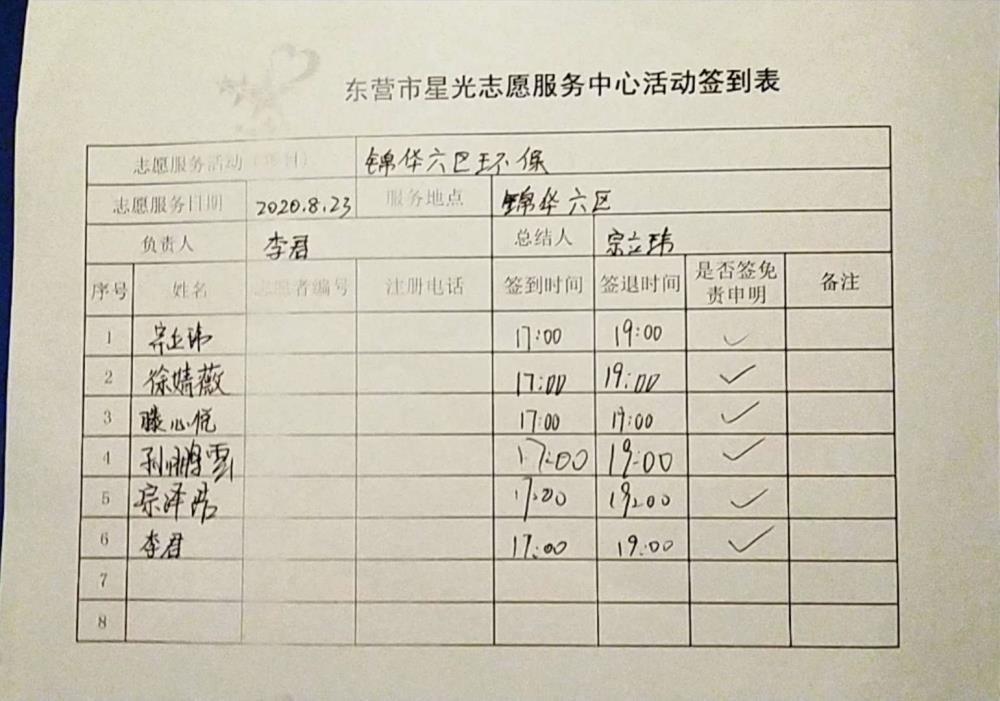 东营市星光志愿服务中心活动签到表
志愿服务活动（项目） 锦华六区环保
志愿服务日期 2020.8.23 服务地点 锦华六区
负责人 李君 总结人 宗立玮
序号 姓名 志愿者编号 注册电话 签到时间 签退时间 是否签免责申明 备注
1 宗立玮 17:00 19:00 ✓
2 徐婧薇 17:00 19:00 ✓
3 滕心悦 17:00 19:00 ✓
4 孙鹏雲 17:00 19:00 ✓
5 宗泽浩 17:00 19:00 ✓
6 李君 17:00 19:00 ✓
7
8